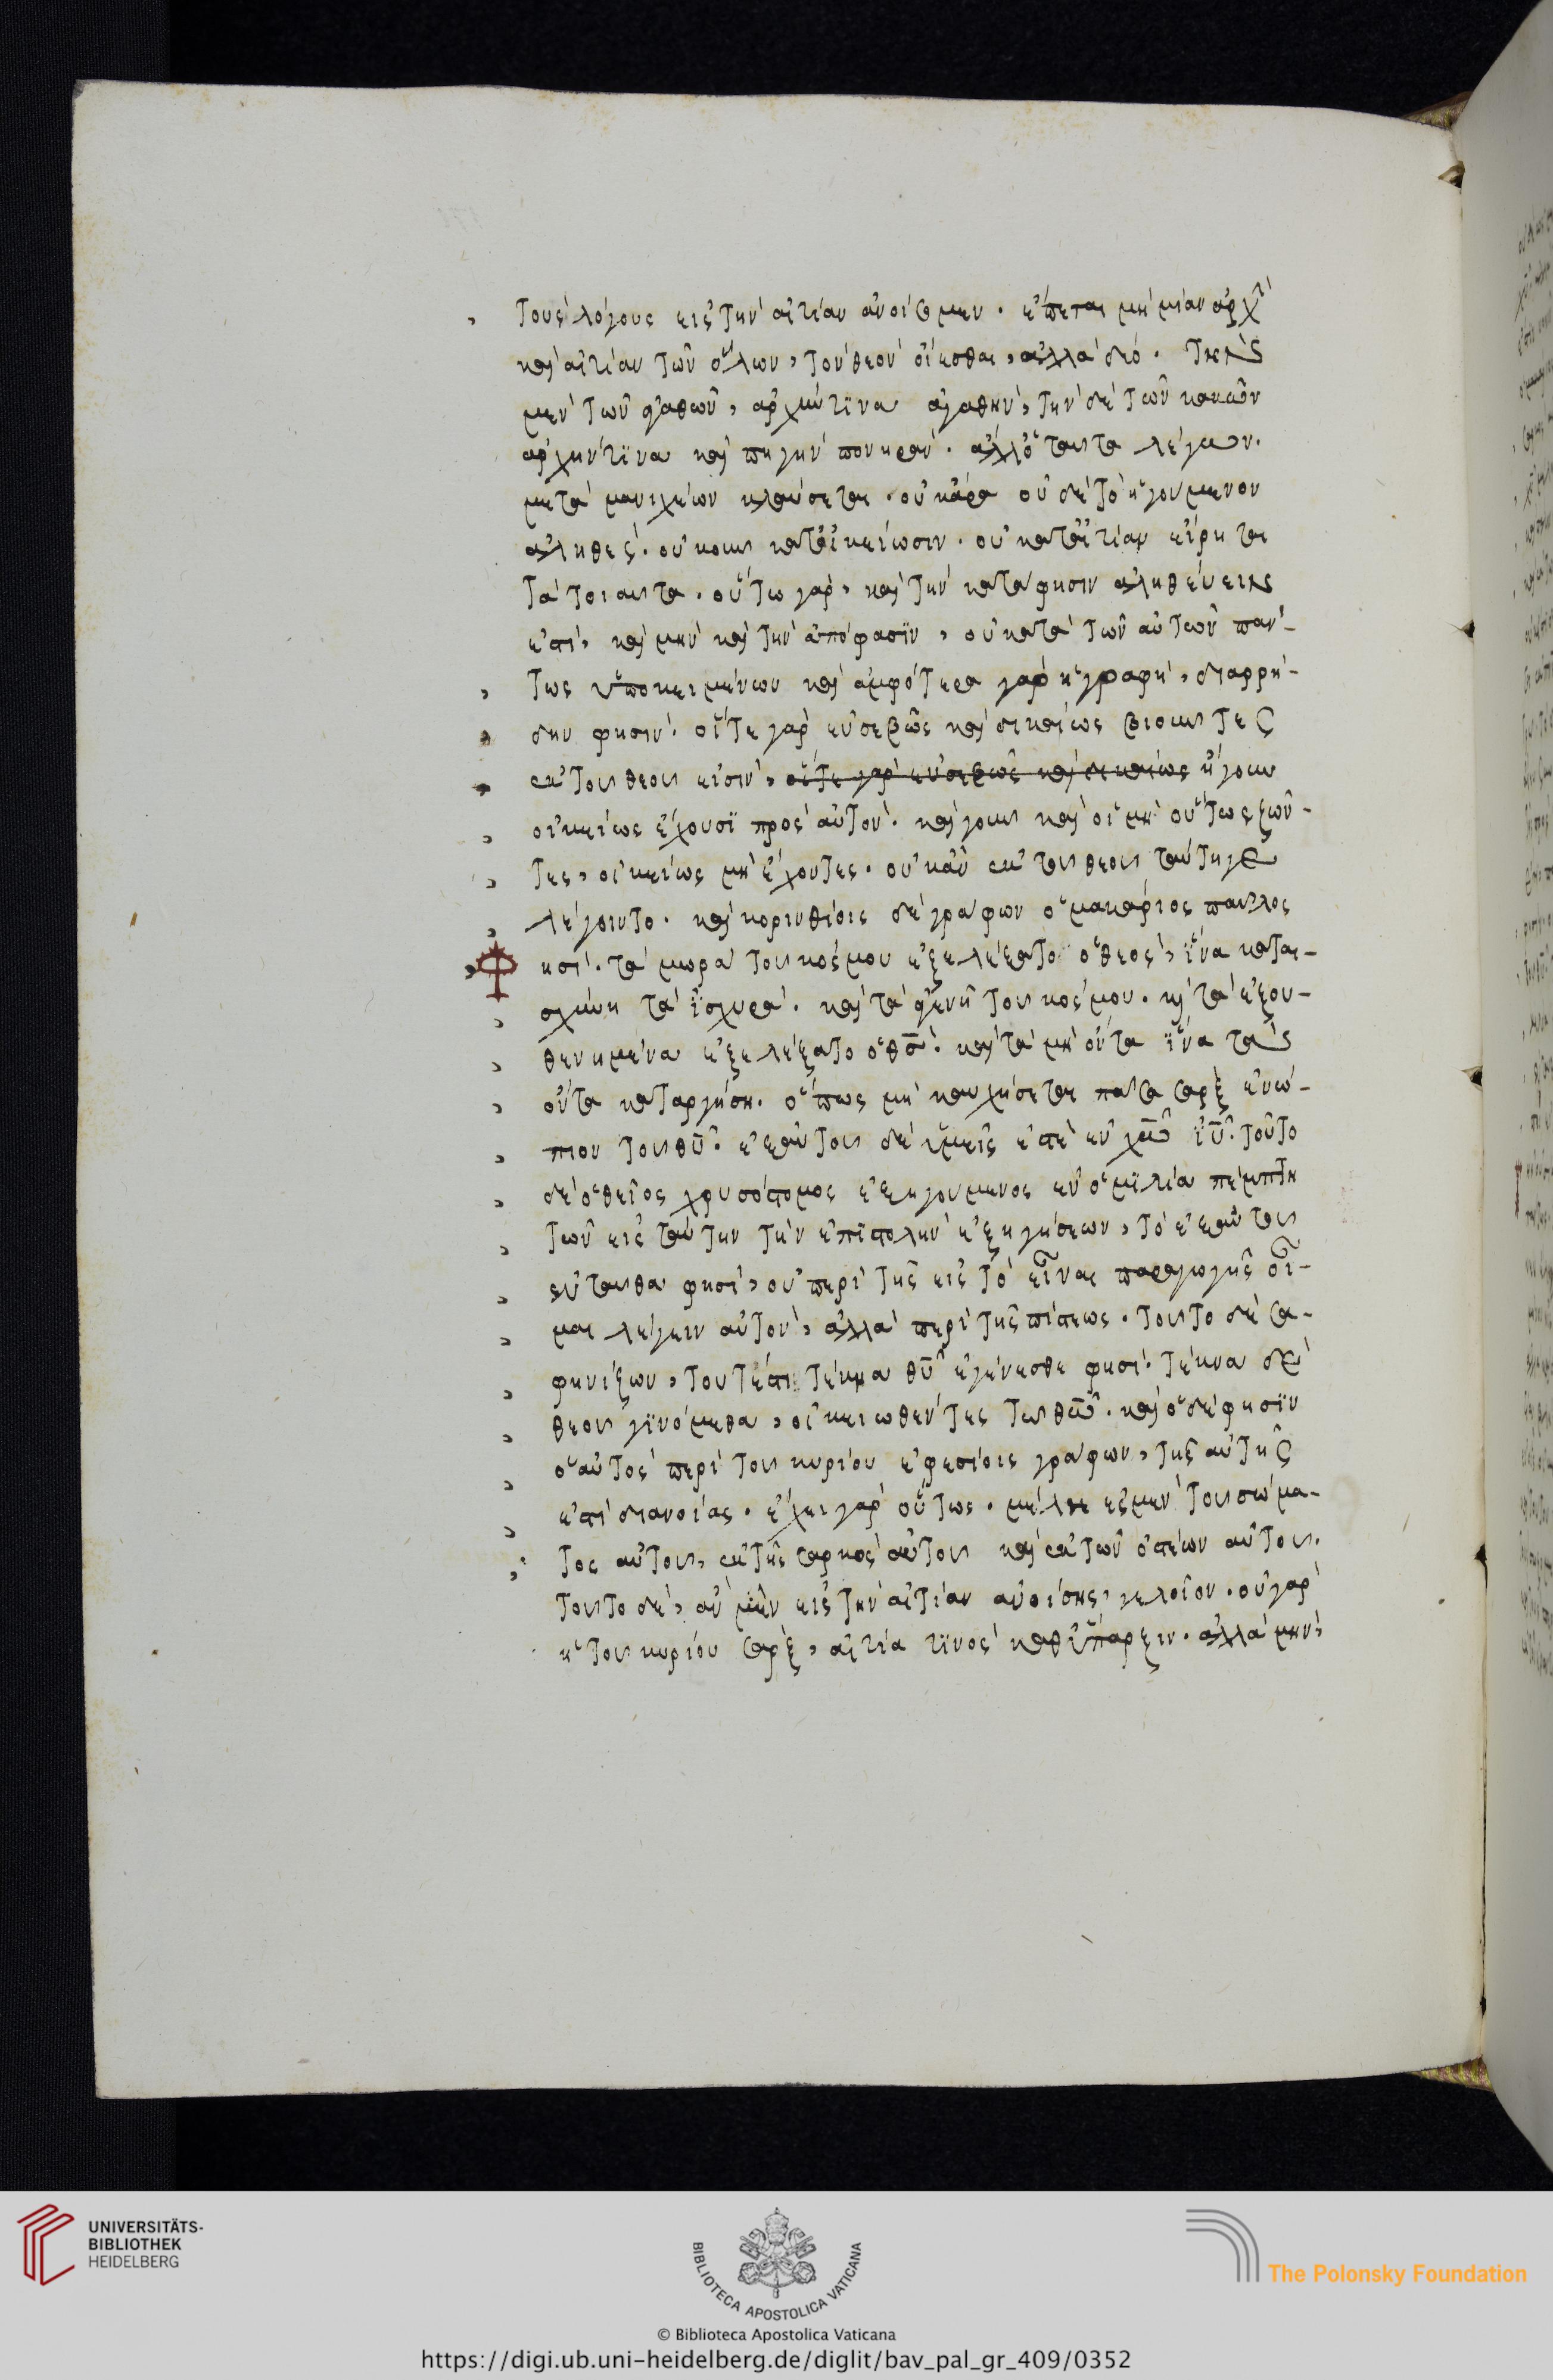 τοὺς λόγους εἰς τὴν αἰτίαν ἀνοίσωμεν. ἕπεται μὴ μίαν ἀρχὴ
καὶ αἰτίαν τῶν ὅλων, τὸν θεὸν οἴεσθαι, ἀλλὰ δύο. τὴν
μὲν τῶν ἀγαθῶν, ἀρχήν τινα ἀγαθὴν, τὴν δὲ τῶν κακῶν
ἀρχήν τινα καὶ πηγὴν πονηράν. ἀλλ' ὁ ταῦτα λέγων.
μετὰ μανιχαίων κλαύσεται. οὐκ ἄρα οὐδὲ τὸ ἡγούμενον
ἀληθές. οὐκοῦν κατ' οἰκείωσιν. οὐ κατ' αἰτίαν εἴρηται
τὰ τοιαῦτα. οὕτω γὰρ, καὶ τὴν κατάφασιν ἀληθεύειν
ἐστὶ, καὶ μὴν καὶ τὴν ἀπόφασιν, οὐ κατὰ τῶν αὐτῶν πάν-
τως ὑποκειμένων καὶ ἀμφότερα γὰρ ἡ γραφὴ, διαρρή-
δην φησίν. οἵ τε γὰρ εὐσεβῶς καὶ δικαίως βιοῦντες
ἐκ τοῦ θεοῦ εἰσὶν, οἵ τε γὰρ εὐσεβῶς καὶ δικαίως ἤγουν
οἰκείως ἔχουσι πρὸς αὐτόν. καὶ γοῦν καὶ οἱ μὴ οὕτως ζῶν-
τες, οἰκείως μὴ ἔχοντες. οὐκ ἂν ἐκ τοῦ θεοῦ ταύτῃ γε
λέγοιντο. καὶ κορινθίοις δὲ γράφων ὁ μακάριος παῦλος
φησί. τὰ μωρὰ τοῦ κόσμου ἐξελέξατο ὁ θεὸς, ἵνα καται-
σχύνῃ τὰ ἰσχυρά. καὶ τὰ ἀγενῆ τοῦ κόσμου. κὶ τὰ ἐξου-
θενημένα ἐξελέξατο ὁ θσ̅. καὶ τὰ μὴ ὄντα ἵνα τὰ
ὄντα καταργήσῃ. ὅπως μὴ καυχήσεται πᾶσα σὰρξ ἐνώ-
πιον τοῦ θυ̅. ἐξ αὐτοῦ δὲ ὑμεῖς ἐστὲ ἐν χω̅ ἰυ̅. τοῦτο
δὲ ὁ θεῖος χρυσόστομος ἐξηγούμενος ἐν ὁμιλία πέμπτῃ
τῶν εἰς ταύτην τὴν ἐπιστολὴν ἐξηγήσεων, τὸ ἐξ αὐτοῦ
ἐνταῦθα φησὶ, οὐ περὶ τῆς εἰς τὸ εἶναι παραγωγῆς οἶ-
μαι λέγειν αὐτὸν, ἀλλὰ περὶ τῆς πίστεως. τοῦτο δὲ σα-
φηνίζων, τουτέστι τέκνα θυ̅ ἐγένεσθε φησί. τέκνα δὲ
θεοῦ γινόμεθα, οἰκειωθέντες τῶ θω̅. καὶ ὃ δέ φησιν
ὁ αὐτὸς περὶ τοῦ κυρίου ἐφεσίοις γράφων, τῆς αὐτῆς
ἐστὶ διανοίας. ἔχει γὰρ οὕτως. μέλη ἐσμὲν τοῦ σώμα-
τος αὐτοῦ, ἐκ τῆς σαρκὸς αὐτοῦ καὶ ἐκ τῶν ὀστέων αὐτοῦ.
τοῦτο δὲ, ἂν μὲν εἰς τὴν αἰτίαν ἀνοίσῃς, γελοῖον. οὐ γὰρ
ἡ τοῦ κυρίου σὰρξ, αἰτία τινὸς καθ' ὕπαρξιν. ἀλλὰ μὴν
UNIVERSITÄTS-
BIBLIOTHEK
HEIDELBERG
BIBLIOTECA APOSTOLICA VATICANA
The Polonsky Foundation
© Biblioteca Apostolica Vaticana
https://digi.ub.uni-heidelberg.de/diglit/bav_pal_gr_409/0352